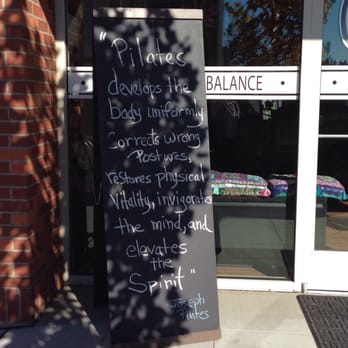 "Pilates
develops the
body uniformly
Corrects wrong
Postures,
restores physical
Vitality, invigorates
the mind, and
elevates
the
Spirit"
Joseph
BALANCE